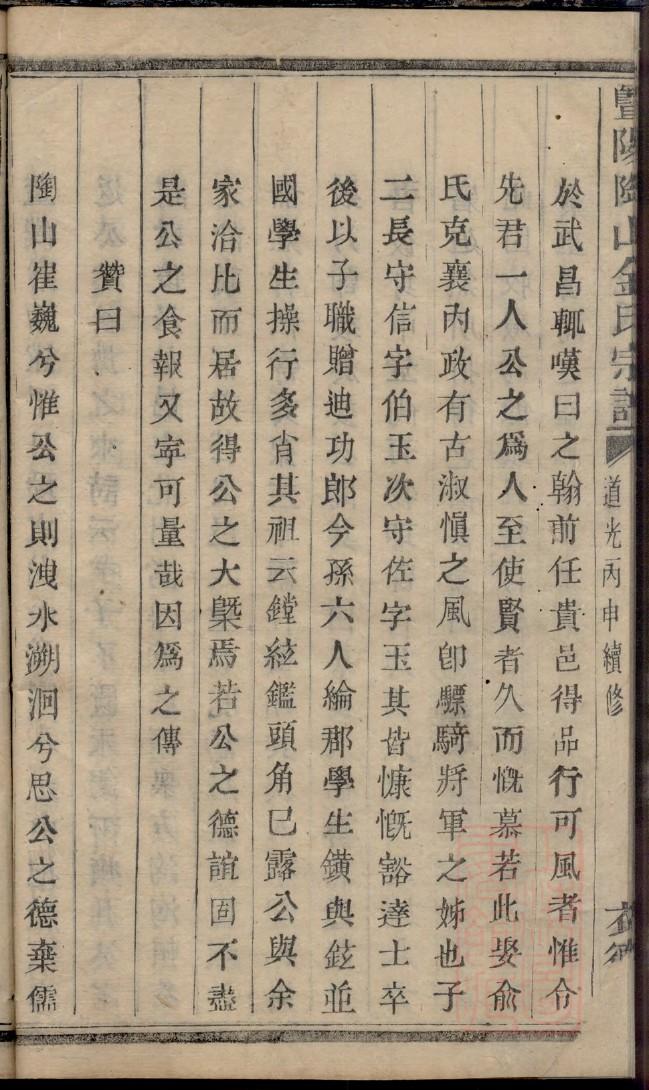 暨陽陶山金氏宗譜 道光丙申續修
於武昌輒嘆曰之翰前任貴邑得品行可風者惟令
先君一人公之爲人至使賢者久而慨慕若此娶俞
氏克襄内政有古淑愼之風卽驃騎將軍之姊也子
二長守信字伯玉次守佐字玉其皆慷慨豁達士卒
後以子職贈迪功郎今孫六人綸郡學生鐄與鉉並
國學生操行多肖其祖云鏜鉉鑑頭角已露公與余
家洽比而居故得公之大槩焉若公之德誼固不盡
是公之食報又寜可量哉因爲之傳
贊曰
陶山崔巍兮惟公之則洩水溯洄兮思公之德棄儒